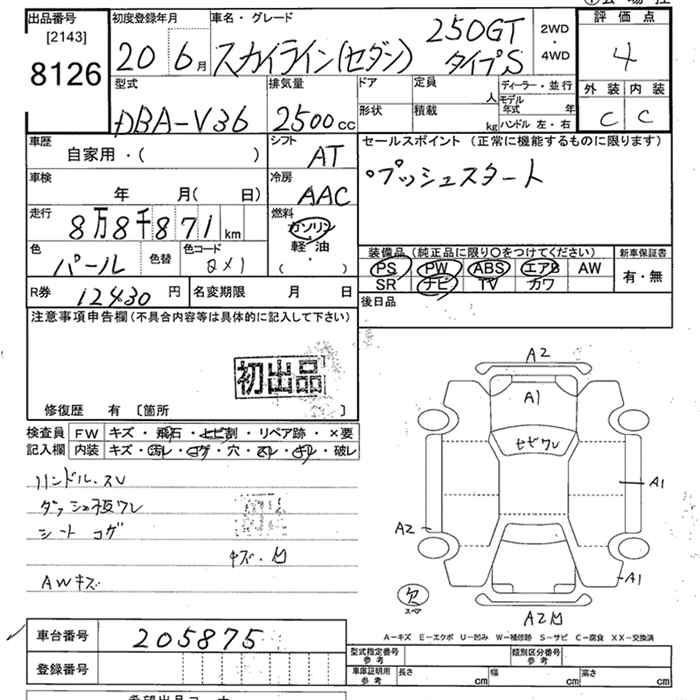 出品番号 初度登録年月 車名・グレード 評価点
[2143]
8126 20 6月 スカイライン(セダン) 250GT タイプS 2WD ・ 4WD 4
型式 排気量 ドア 定員 人 ディーラー・並行 外装 内装
DBA-V36 2500cc 形状 積載 kg モデル年式 年 ハンドル 左・右 C C
車歴 自家用・( ) シフト AT セールスポイント (正常に機能するものに限ります)
車検 年 月( 日) 冷房 AAC ・プッシュスタート
走行 8万8千871km 燃料 ガソリン 軽・油 ( )
色 パール 色替 色コード QX1 装備品(純正品に限り○をつけてください) 新車保証書
PS PW ABS エアB AW 有・無
SR ナビ TV カワ
R券 12430円 名変期限 月 日 後日品
注意事項申告欄(不具合内容等は具体的に記入して下さい)
初出品
修復歴 有 [箇所 ]
検査員 FW キズ・飛石・ヒビ割・リペア跡・×要
記入欄 内装 キズ・汚レ・コゲ・穴・スレ・切レ・破レ
ハンドル スレ
ダッシュ板ワレ
シート コゲ
キズ・凹
AWキズ
A2
A1
ヒビワレ
A1
A2
A1
欠
スペア
A2凹
A-キズ E-エクボ U-凹み W-補修跡 S-サビ C-腐食 XX-交換済
車台番号 205875
型式指定番号 参考 類別区分番号 参考
登録番号 車庫証明用 参考 長さ cm 幅 cm 高さ cm